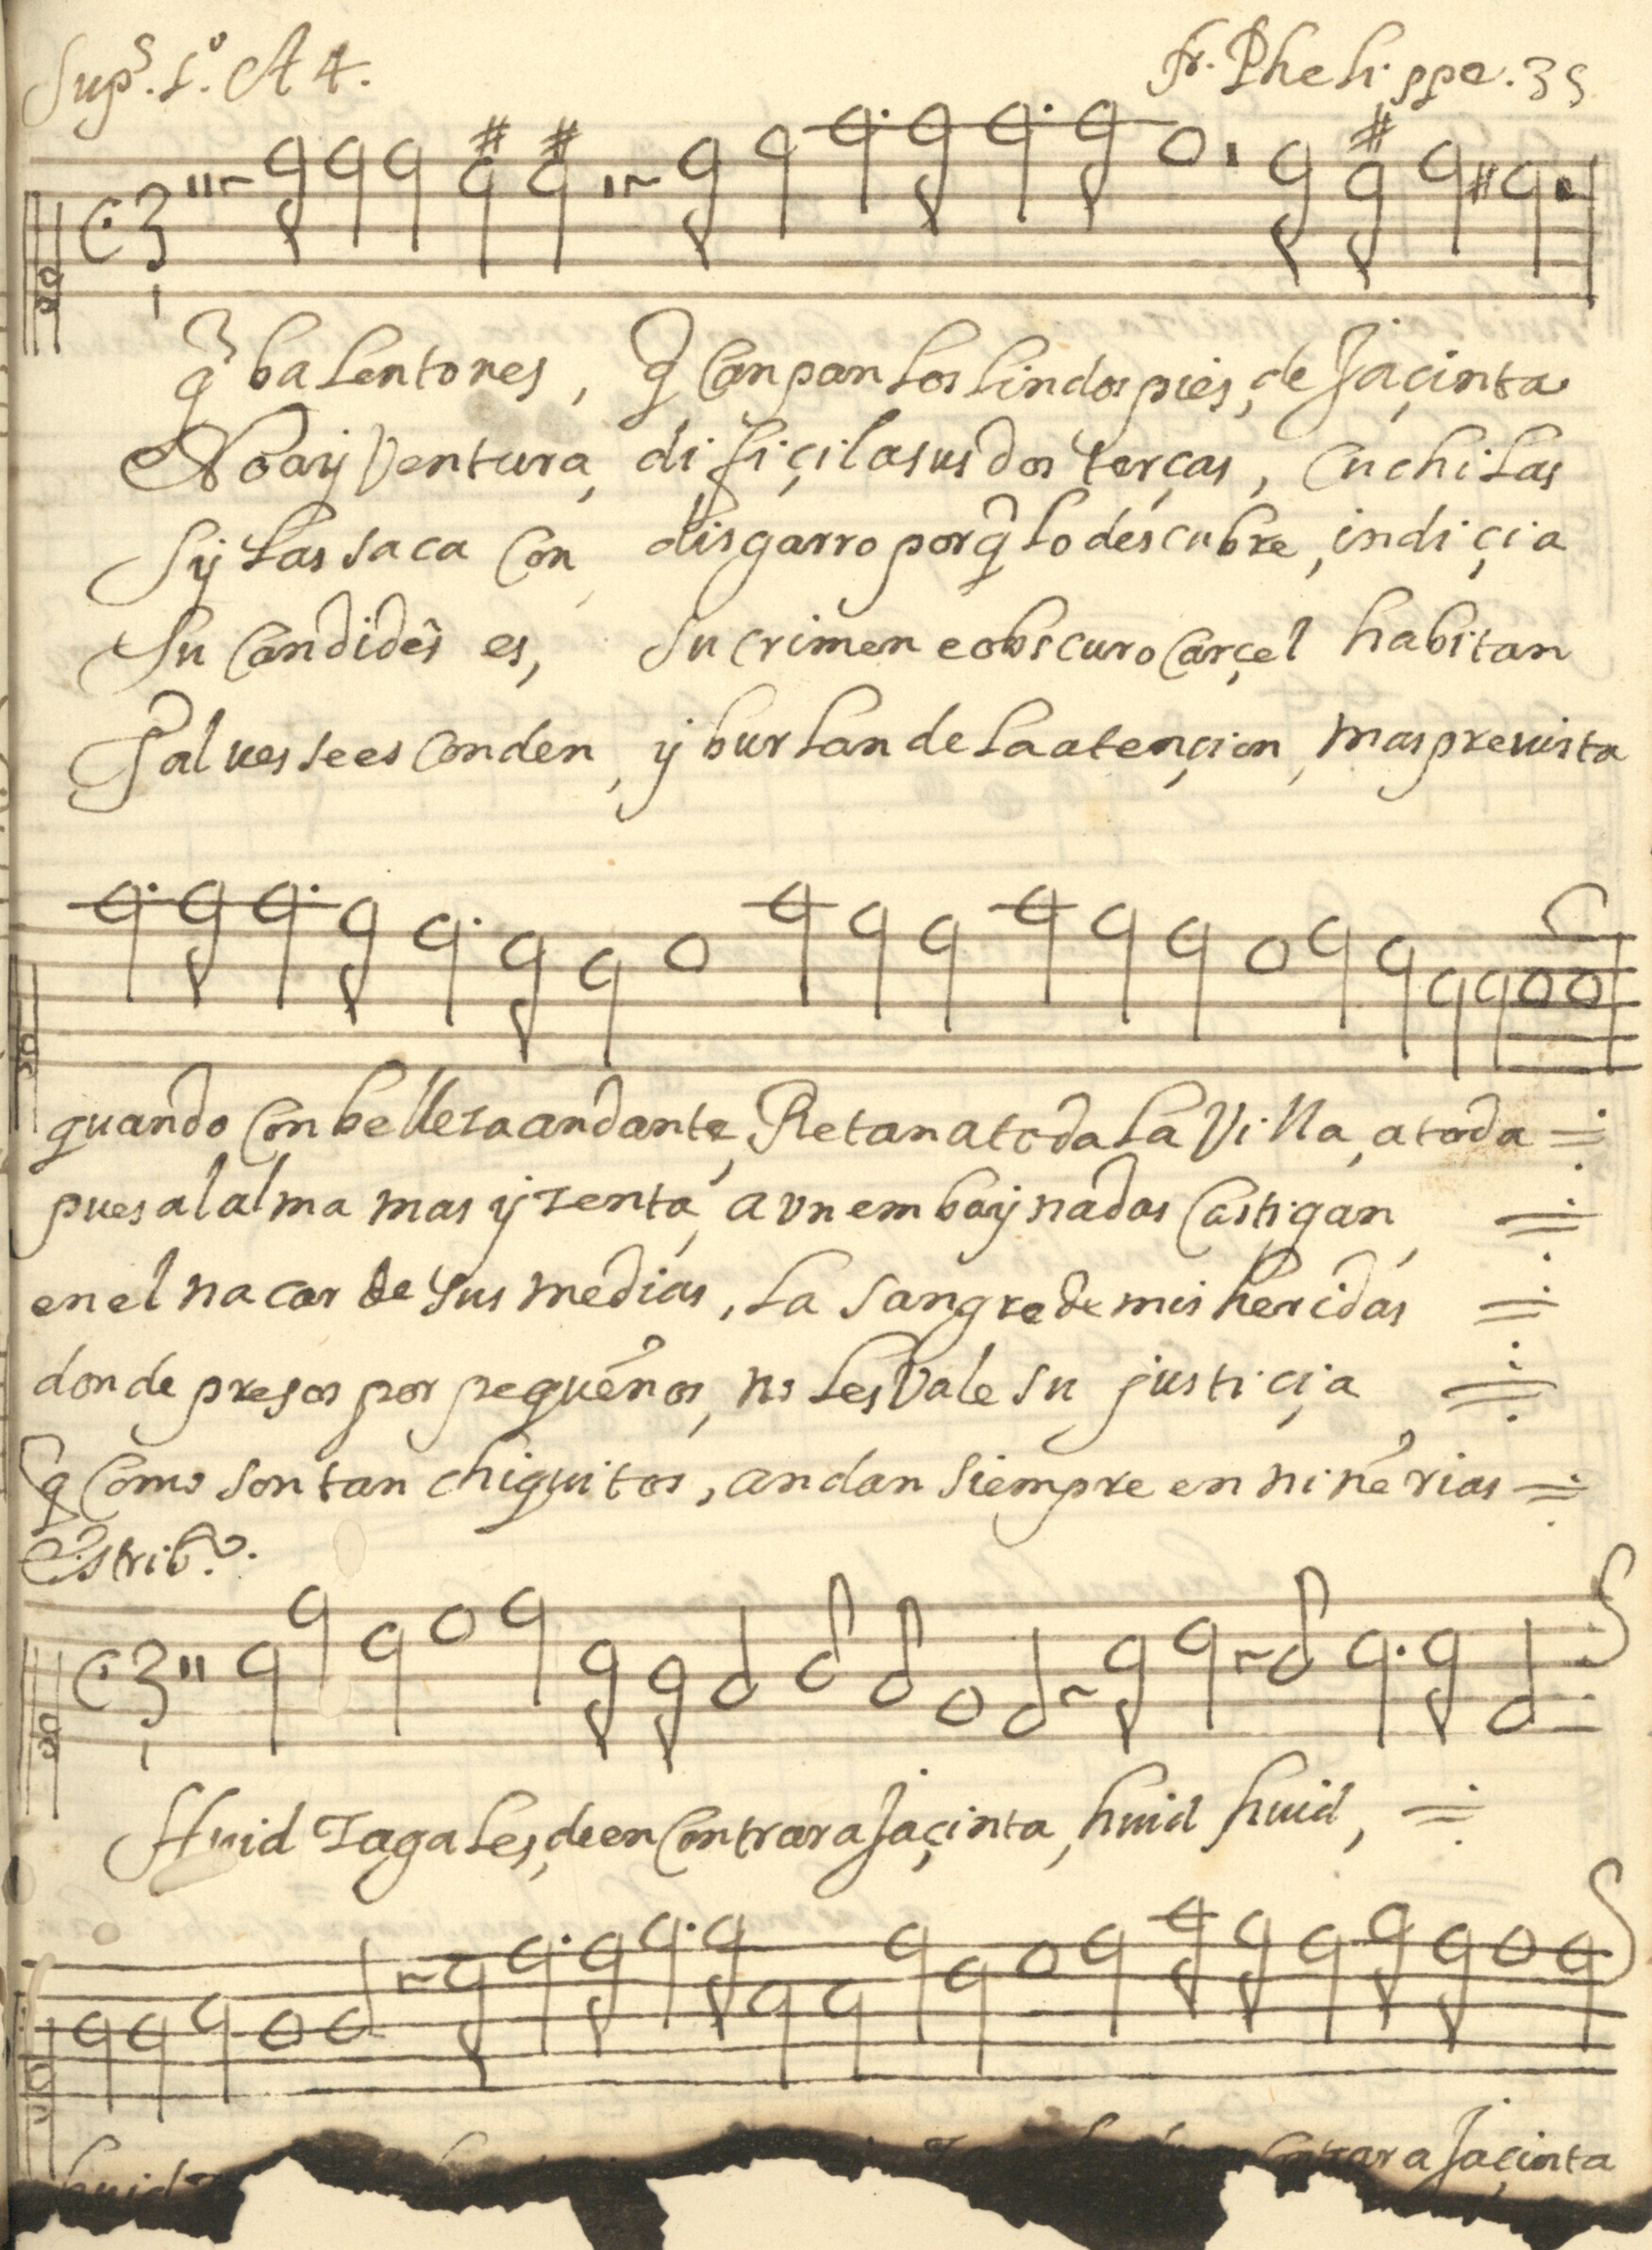 Sup.s 1.o A 4.
fr. Phelippe. 35
q̃ balentones, q̃ Canpan los lindos pies, de Jaçinta
No ay Ventura, difiçil a sus dos terças, Cuchilas
Sy las saca Con, disgarro porq̃ lo descubre, indiçia
Su Candidẽs es, Su crimen e obscuro Carçel habitan
Tal ues se esConden, y burlan de la atençion, mas preuista
quando Con belleza andante, Retan a toda la Villa, a toda
pues al alma mas yzenta, a vn embaynadas Castigan,
en el nacar de sus medias, la sangre de mis heridas
donde presos por pequẽnos, no les Vale su justiçia
q̃ Como son tan chiquitos, andan siempre en ninẽrias
Estrib.o.
Huid zagales, de enContrar a Jaçinta, huid huid,
huid ontrar a Jaçinta